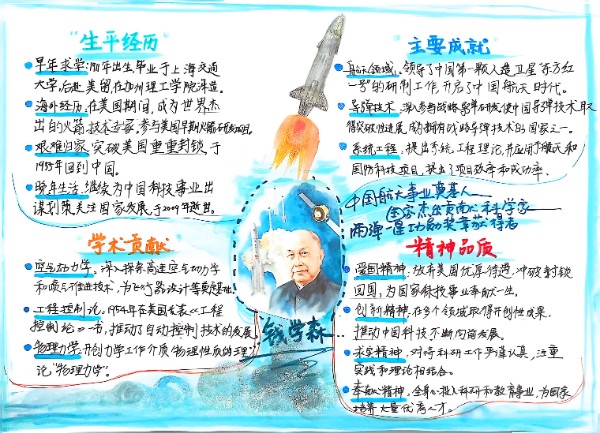 "生平经历"
早年求学:1911年出生,毕业于上海交通
大学,后赴美留在加州理工学院深造。
海外经历,在美国期间,成为世界杰
出的火箭技术专家,参与美国早期火箭研发项目
艰难归家,突破美国重重封锁,于
1955年回到中国。
晚年生活,继续为中国科技事业出
谋划策关注国家发展,于2009年逝世。
"主要成就"
航天领域,领导了中国第一颗人造卫星"东方红
一号"的研制工作,开启了中国航天时代。
导弹技术,深入参与战略导弹研发,使中国导弹技术取
得突破性进展,成为拥有战略导弹技术的国家之一。
系统工程,提出系统工程理论,并应用于航天和
国防科技项目,提高了项目效率和成功率。
中国航天事业奠基人
国家杰出贡献科学家
两弹一星功勋奖章获得者
"学术贡献"
空气动力学,深入探索高速空气动力学
和喷气推进技术,为飞行器设计等奠定基础。
工程控制论,1954年在美国发表《工程
控制论》一书,推动了自动控制技术的发展
物理力学,开创力学工作介质物理性质的理
论"物理力学"。
钱学森
"精神品质"
爱国精神:放弃美国优厚待遇,冲破封锁
回国,为国家科技事业奉献一生。
创新精神,在多个领域取得开创性成果,
推动中国科技不断向前发展。
求实精神,对待科研工作严谨认真,注重
实践和理论相结合。
奉献精神,全身心投入科研和教育事业,为国家
培养大量优秀人才。